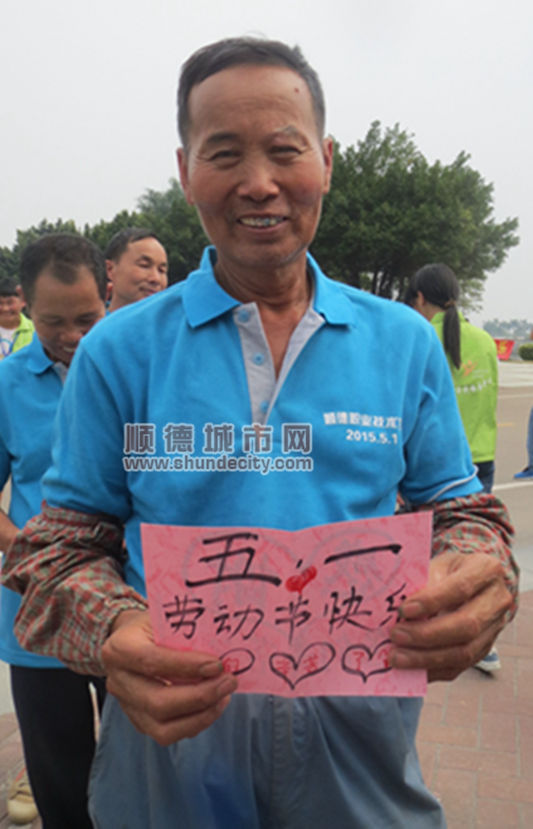 顺德职业技术
2015.5.1
顺德城市网
www.shundecity.com
五.一
劳动节快乐
辛苦了